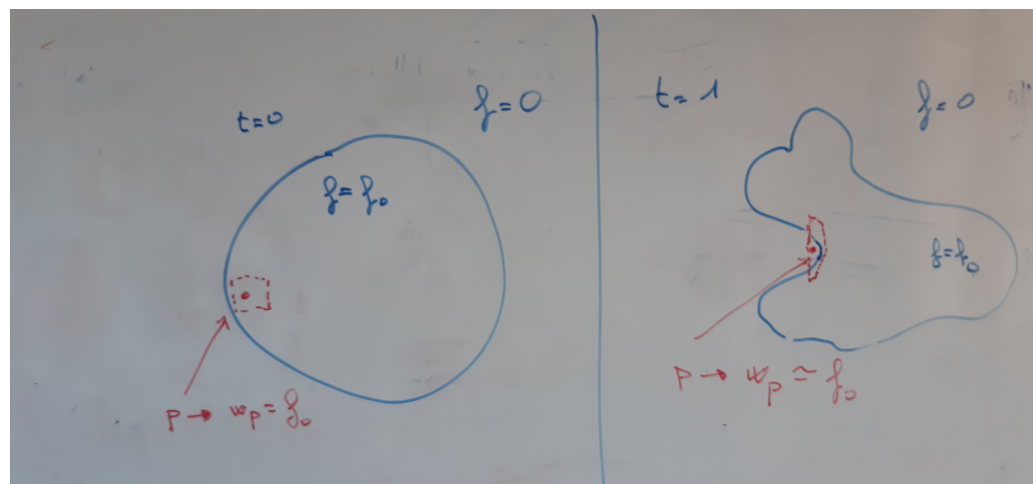 t=0
f=0
f=f₀
p → w_p = f₀
t=1
f=0
f=f₀
p → w_p ≃ f₀